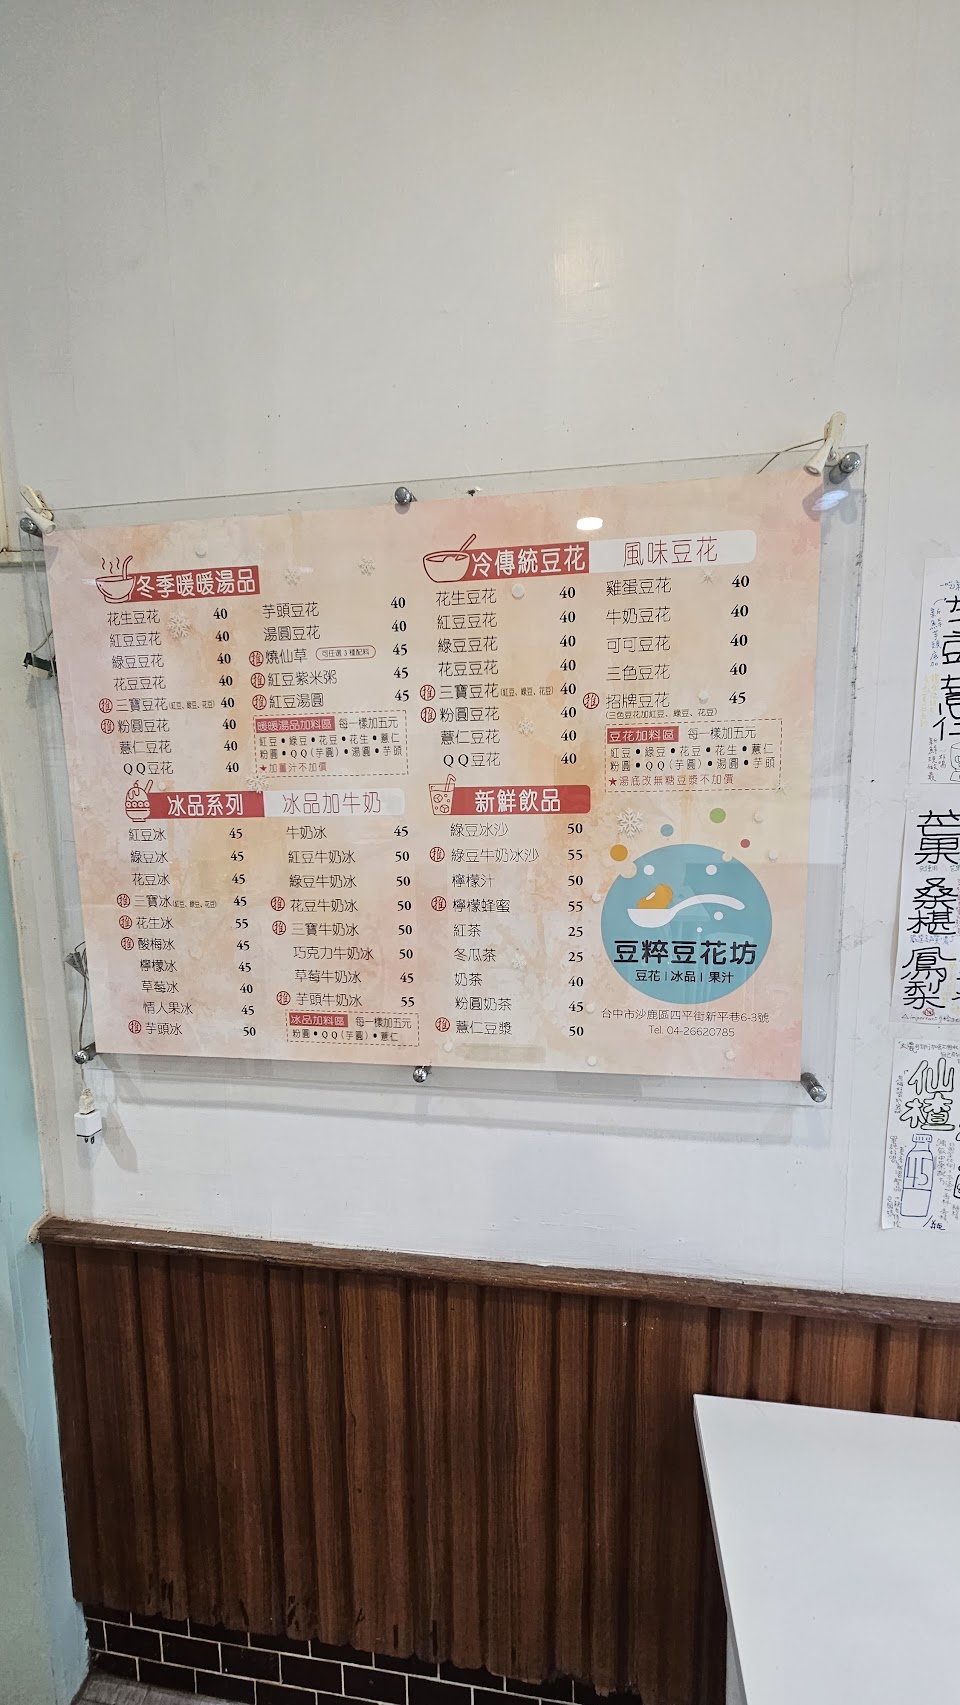 冬季暖暖湯品
花生豆花 40
紅豆豆花 40
綠豆豆花 40
花豆豆花 40
推 三寶豆花(紅豆、綠豆、花豆) 40
推 粉圓豆花 40
薏仁豆花 40
QQ豆花 40
芋頭豆花 40
湯圓豆花 40
推 燒仙草 可任選3種配料 45
推 紅豆紫米粥 45
推 紅豆湯圓 45
暖暖湯品加料區 每一樣加五元
紅豆•綠豆•花豆•花生•薏仁
粉圓•QQ(芋圓)•湯圓•芋頭
★加薑汁不加價
冷傳統豆花
花生豆花 40
紅豆豆花 40
綠豆豆花 40
花豆豆花 40
推 三寶豆花(紅豆、綠豆、花豆) 40
推 粉圓豆花 40
薏仁豆花 40
QQ豆花 40
風味豆花
雞蛋豆花 40
牛奶豆花 40
可可豆花 40
三色豆花 40
推 招牌豆花 45
(三色豆花加紅豆、綠豆、花豆)
豆花加料區 每一樣加五元
紅豆•綠豆•花豆•花生•薏仁
粉圓•QQ(芋圓)•湯圓•芋頭
★湯底改無糖豆漿不加價
冰品系列
紅豆冰 45
綠豆冰 45
花豆冰 45
推 三寶冰(紅豆、綠豆、花豆) 45
推 花生冰 55
推 酸梅冰 45
檸檬冰 45
草莓冰 40
情人果冰 45
推 芋頭冰 50
冰品加牛奶
牛奶冰 45
紅豆牛奶冰 50
綠豆牛奶冰 50
推 花豆牛奶冰 50
推 三寶牛奶冰 50
巧克力牛奶冰 50
草莓牛奶冰 45
推 芋頭牛奶冰 55
冰品加料區 每一樣加五元
粉圓•QQ(芋圓)•薏仁
新鮮飲品
綠豆冰沙 50
推 綠豆牛奶冰沙 55
檸檬汁 50
推 檸檬蜂蜜 55
紅茶 25
冬瓜茶 25
奶茶 40
粉圓奶茶 45
推 薏仁豆漿 50
豆粹豆花坊
豆花|冰品|果汁
台中市沙鹿區四平街新平巷6-3號
Tel. 04-26620785
芒果
桑椹
鳳梨
仙楂
45